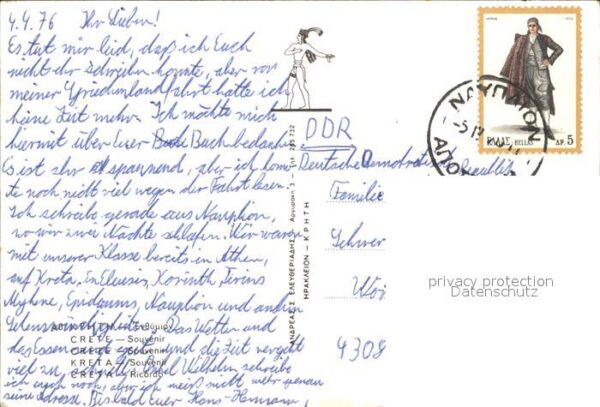 4.4.76 Ihr Lieben!
Es tut mir leid, daß ich Euch
nicht eher schreiben konnte, aber vor
meiner Griechenlandfahrt hatte ich
keine Zeit mehr. Ich möchte mich
hiermit über Euer Buch bedanken.
Es ist sehr spannend, aber ich konn-
te noch nicht viel wegen der Fahrt lesen.
Ich schreibe gerade aus Nauplion,
wo wir zwei Nächte schlafen. Wir waren
mit unserer Klasse bereits in Athen,
auf Kreta, in Eleusis, Korinth, Tirins
Mykene, Epidauros, Nauplion und andren
Sehenswürdigkeiten. Das Wetter und
das Essen gut, und die Zeit vergeht
viel zu schnell. Onkel Wilhelm schreibe
ich auch noch, aber ich weiß nicht mehr genau
seine Adresse. Bis bald Euer Hans-Hermann
CRETE — Souvenir
CRETE — Souvenir
KRETA — Souvenir
CRETA — Ricordo
ΑΝΔΡΕΑΣ ΕΛΕΥΘΕΡΙΑΔΗΣ
ΗΡΑΚΛΕΙΟΝ - ΚΡΗΤΗ
DDR
Deutsche Demokratische Republik
Familie
4308
ΕΛΛΑΣ HELLAS ΔΡ. 5
ΝΑΥΠΛΙΟΝ
privacy protection
Datenschutz